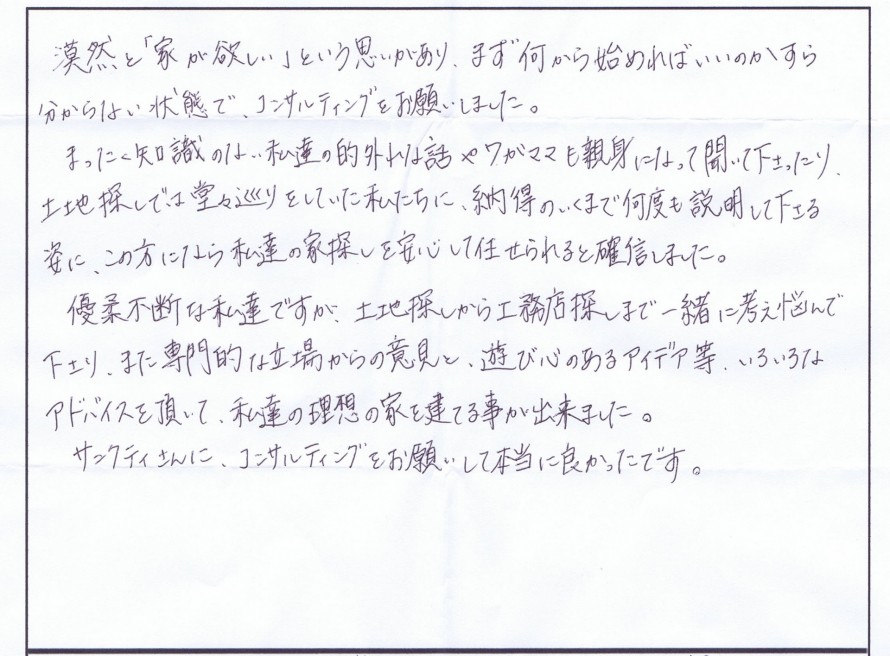 漠然と「家が欲しい」という思いがあり、まず何から始めればいいのかすら
分からない状態で、コンサルティングをお願いしました。
まったく知識のない私達の的外れな話やワガママも親身になって聞いて下さったり、
土地探しでは堂々巡りをしていた私たちに、納得のいくまで何度も説明して下さる
姿に、この方になら私達の家探しを安心して任せられると確信しました。
優柔不断な私達ですが、土地探しから工務店探しまで一緒に考え悩んで
下さり、また専門的な立場からの意見と、遊び心のあるアイデア等、いろいろな
アドバイスを頂いて、私達の理想の家を建てる事が出来ました。
サンクティさんに、コンサルティングをお願いして本当に良かったです。